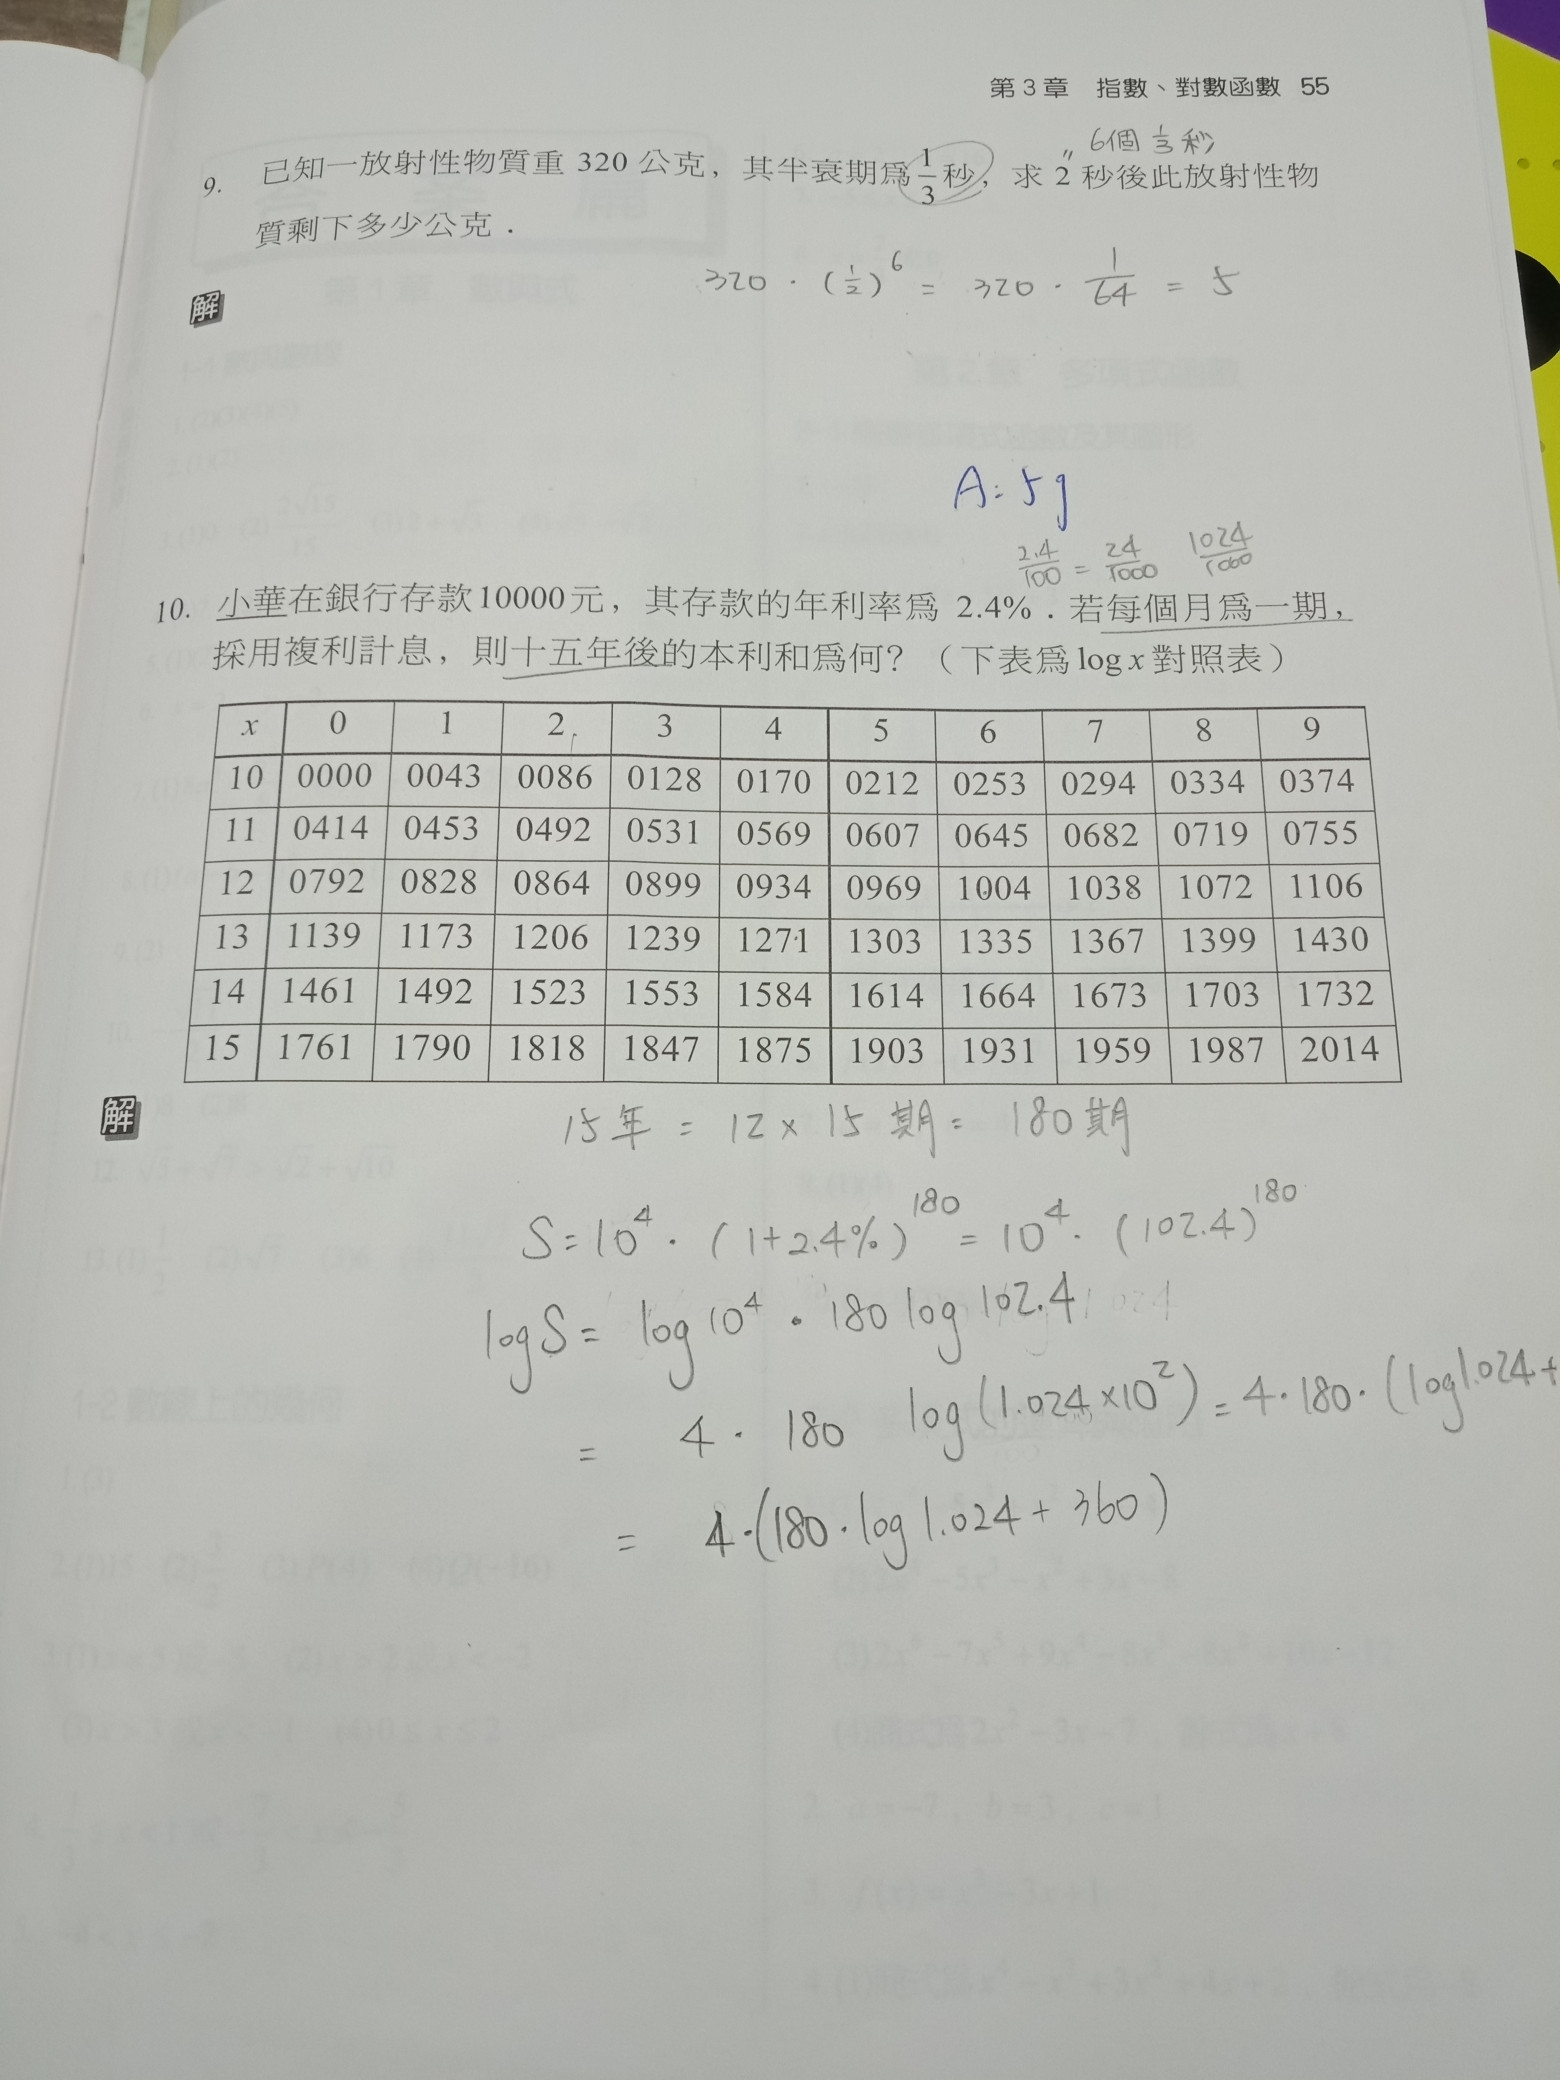 第 3 章　指數、對數函數　55
6個 1/3 秒
9. 已知一放射性物質重 320 公克，其半衰期為 1/3 秒，求 2 秒後此放射性物
質剩下多少公克．
解
320 · (1/2)^6 = 320 · 1/64 = 5
A: 5g
2.4/100 = 24/1000　1024/1000
10. 小華在銀行存款10000元，其存款的年利率為 2.4%．若每個月為一期，
採用複利計息，則十五年後的本利和為何？（下表為 log x 對照表）
x 0 1 2 3 4 5 6 7 8 9
10 0000 0043 0086 0128 0170 0212 0253 0294 0334 0374
11 0414 0453 0492 0531 0569 0607 0645 0682 0719 0755
12 0792 0828 0864 0899 0934 0969 1004 1038 1072 1106
13 1139 1173 1206 1239 1271 1303 1335 1367 1399 1430
14 1461 1492 1523 1553 1584 1614 1664 1673 1703 1732
15 1761 1790 1818 1847 1875 1903 1931 1959 1987 2014
解
15年 = 12 × 15 期 = 180期
S = 10^4 · (1+2.4%)^180 = 10^4 · (102.4)^180
log S = log 10^4 · 180 log 102.4
= 4 · 180 log(1.024×10^2) = 4·180·(log1.024+
= 4·(180·log 1.024 + 360)